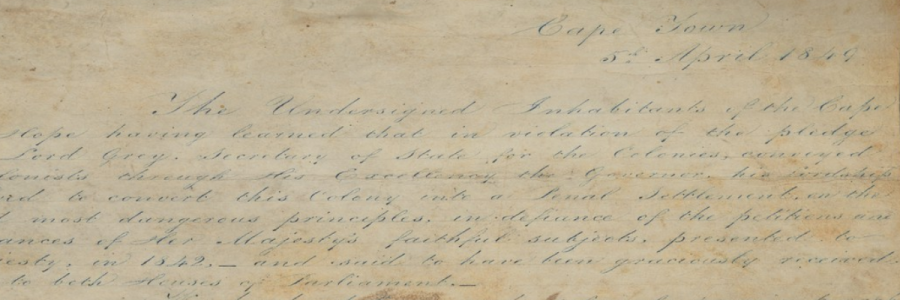 Cape Town
5th April 1849
The Undersigned Inhabitants of the Cape
Hope having learned that in violation of the pledge
Lord Grey, Secretary of State for the Colonies, conveyed
lonists through His Excellency the Governor, his Lordship
rd to convert this Colony into a Penal Settlement, on the
d most dangerous principles, in defiance of the petitions and
ances of Her Majesty's faithful subjects, presented to
jesty, in 1842, — and said to have been graciously received,
to both Houses of Parliament. —